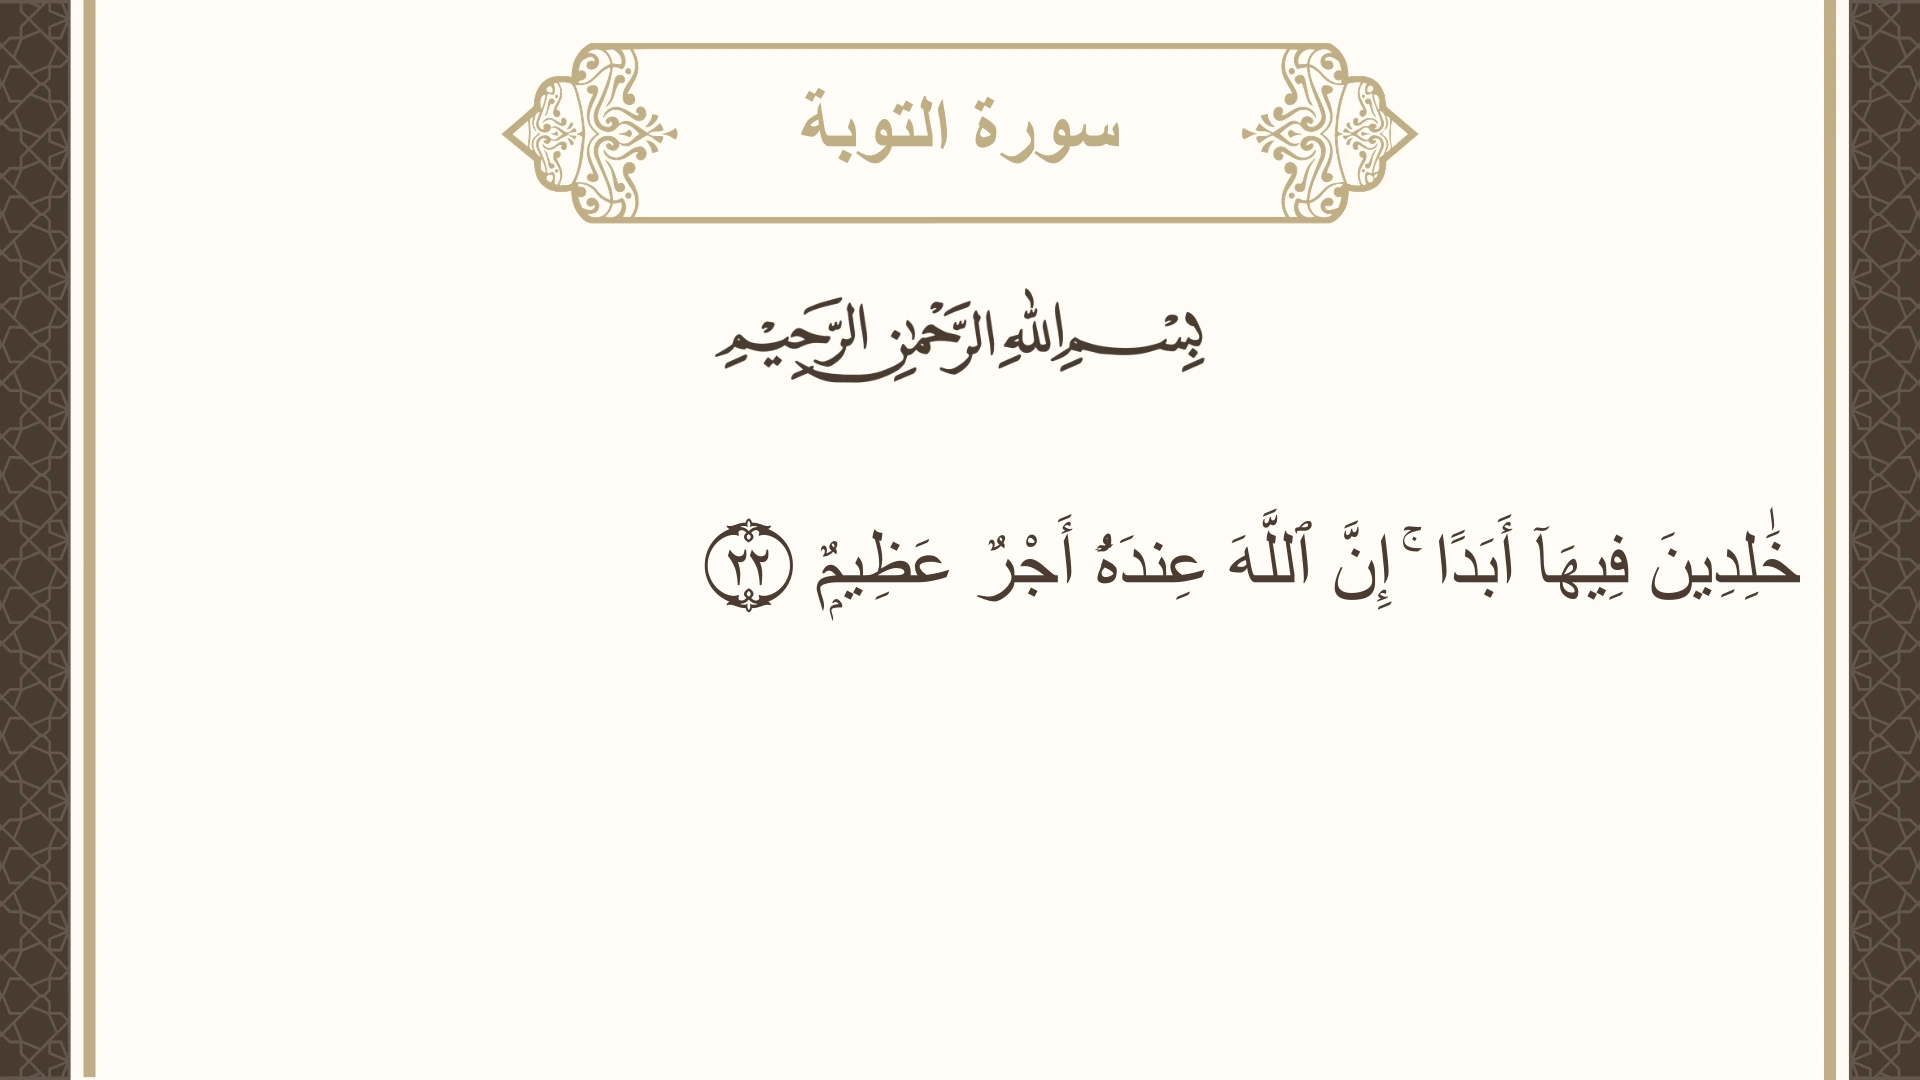 سورة التوبة
بِسْمِ اللهِ الرَّحْمٰنِ الرَّحِيْمِ
خَٰلِدِينَ فِيهَآ أَبَدًا ۚ إِنَّ ٱللَّهَ عِندَهُۥٓ أَجْرٌ عَظِيمٌۭ ٢٢